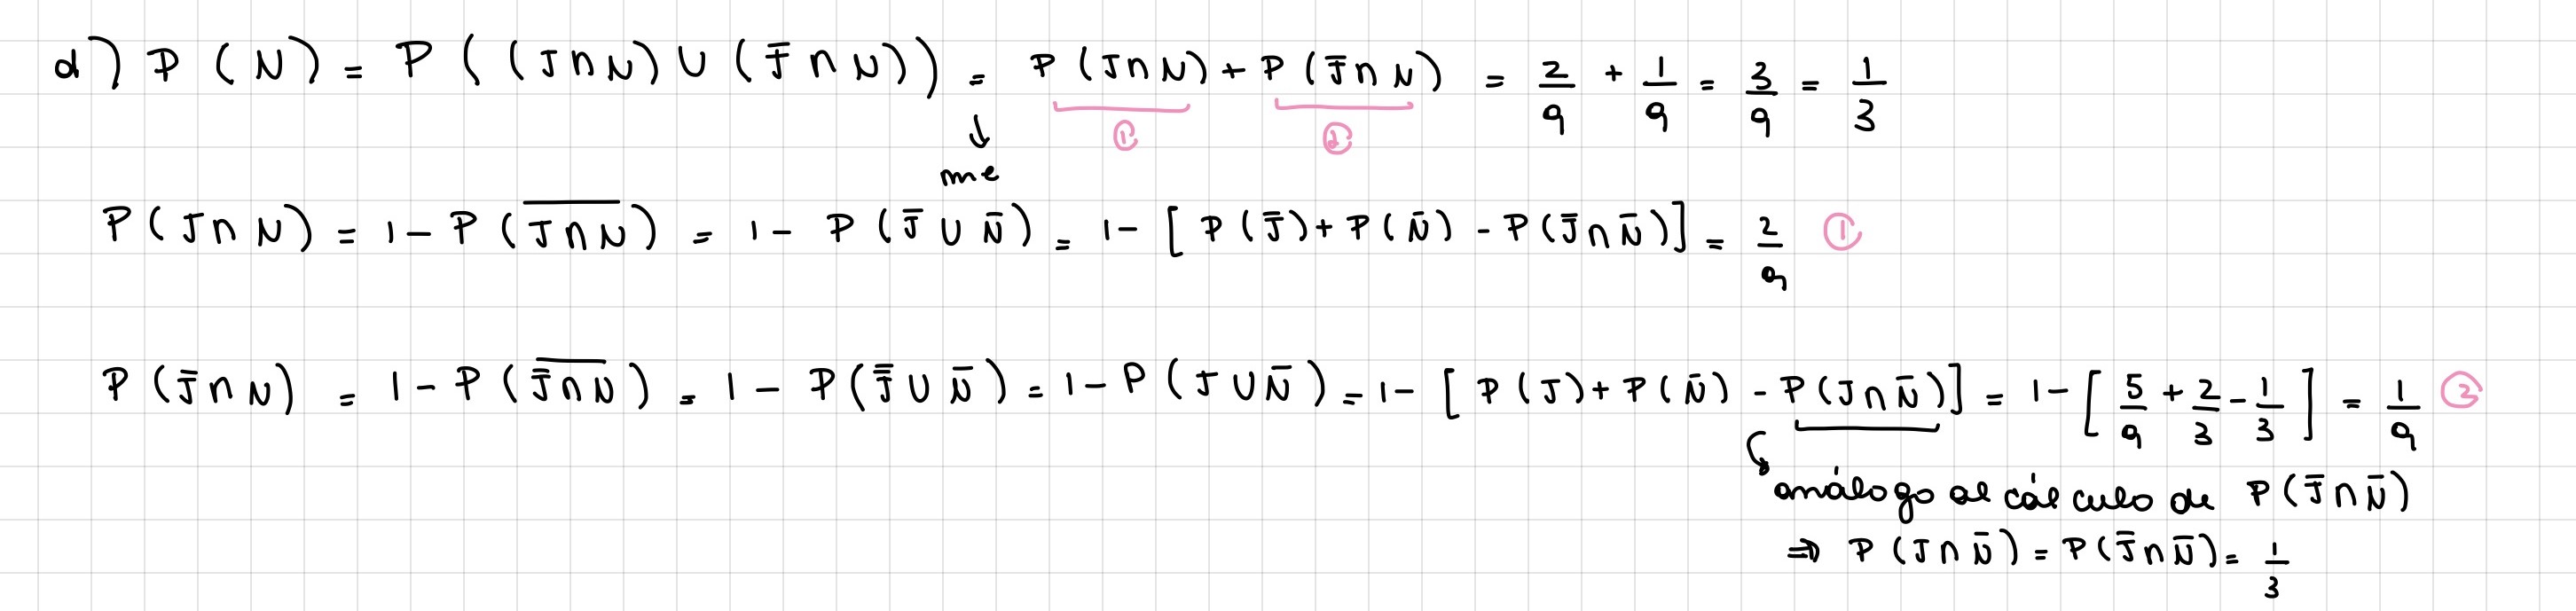 d) P(N) = P((J∩N)∪(J̄∩N)) = P(J∩N) + P(J̄∩N) = 2/9 + 1/9 = 3/9 = 1/3
① ②
↓
me
P(J∩N) = 1 - P(\overline{J∩N}) = 1 - P(J̄∪N̄) = 1 - [P(J̄) + P(N̄) - P(J̄∩N̄)] = 2/9 ①
P(J̄∩N) = 1 - P(\overline{J̄∩N}) = 1 - P(\overline{J̄}∪N̄) = 1 - P(J∪N̄) = 1 - [P(J) + P(N̄) - P(J∩N̄)] = 1 - [5/9 + 2/3 - 1/3] = 1/9 ②
análogo al cálculo de P(J̄∩N̄)
⇒ P(J∩N̄) = P(J̄∩N̄) = 1/3